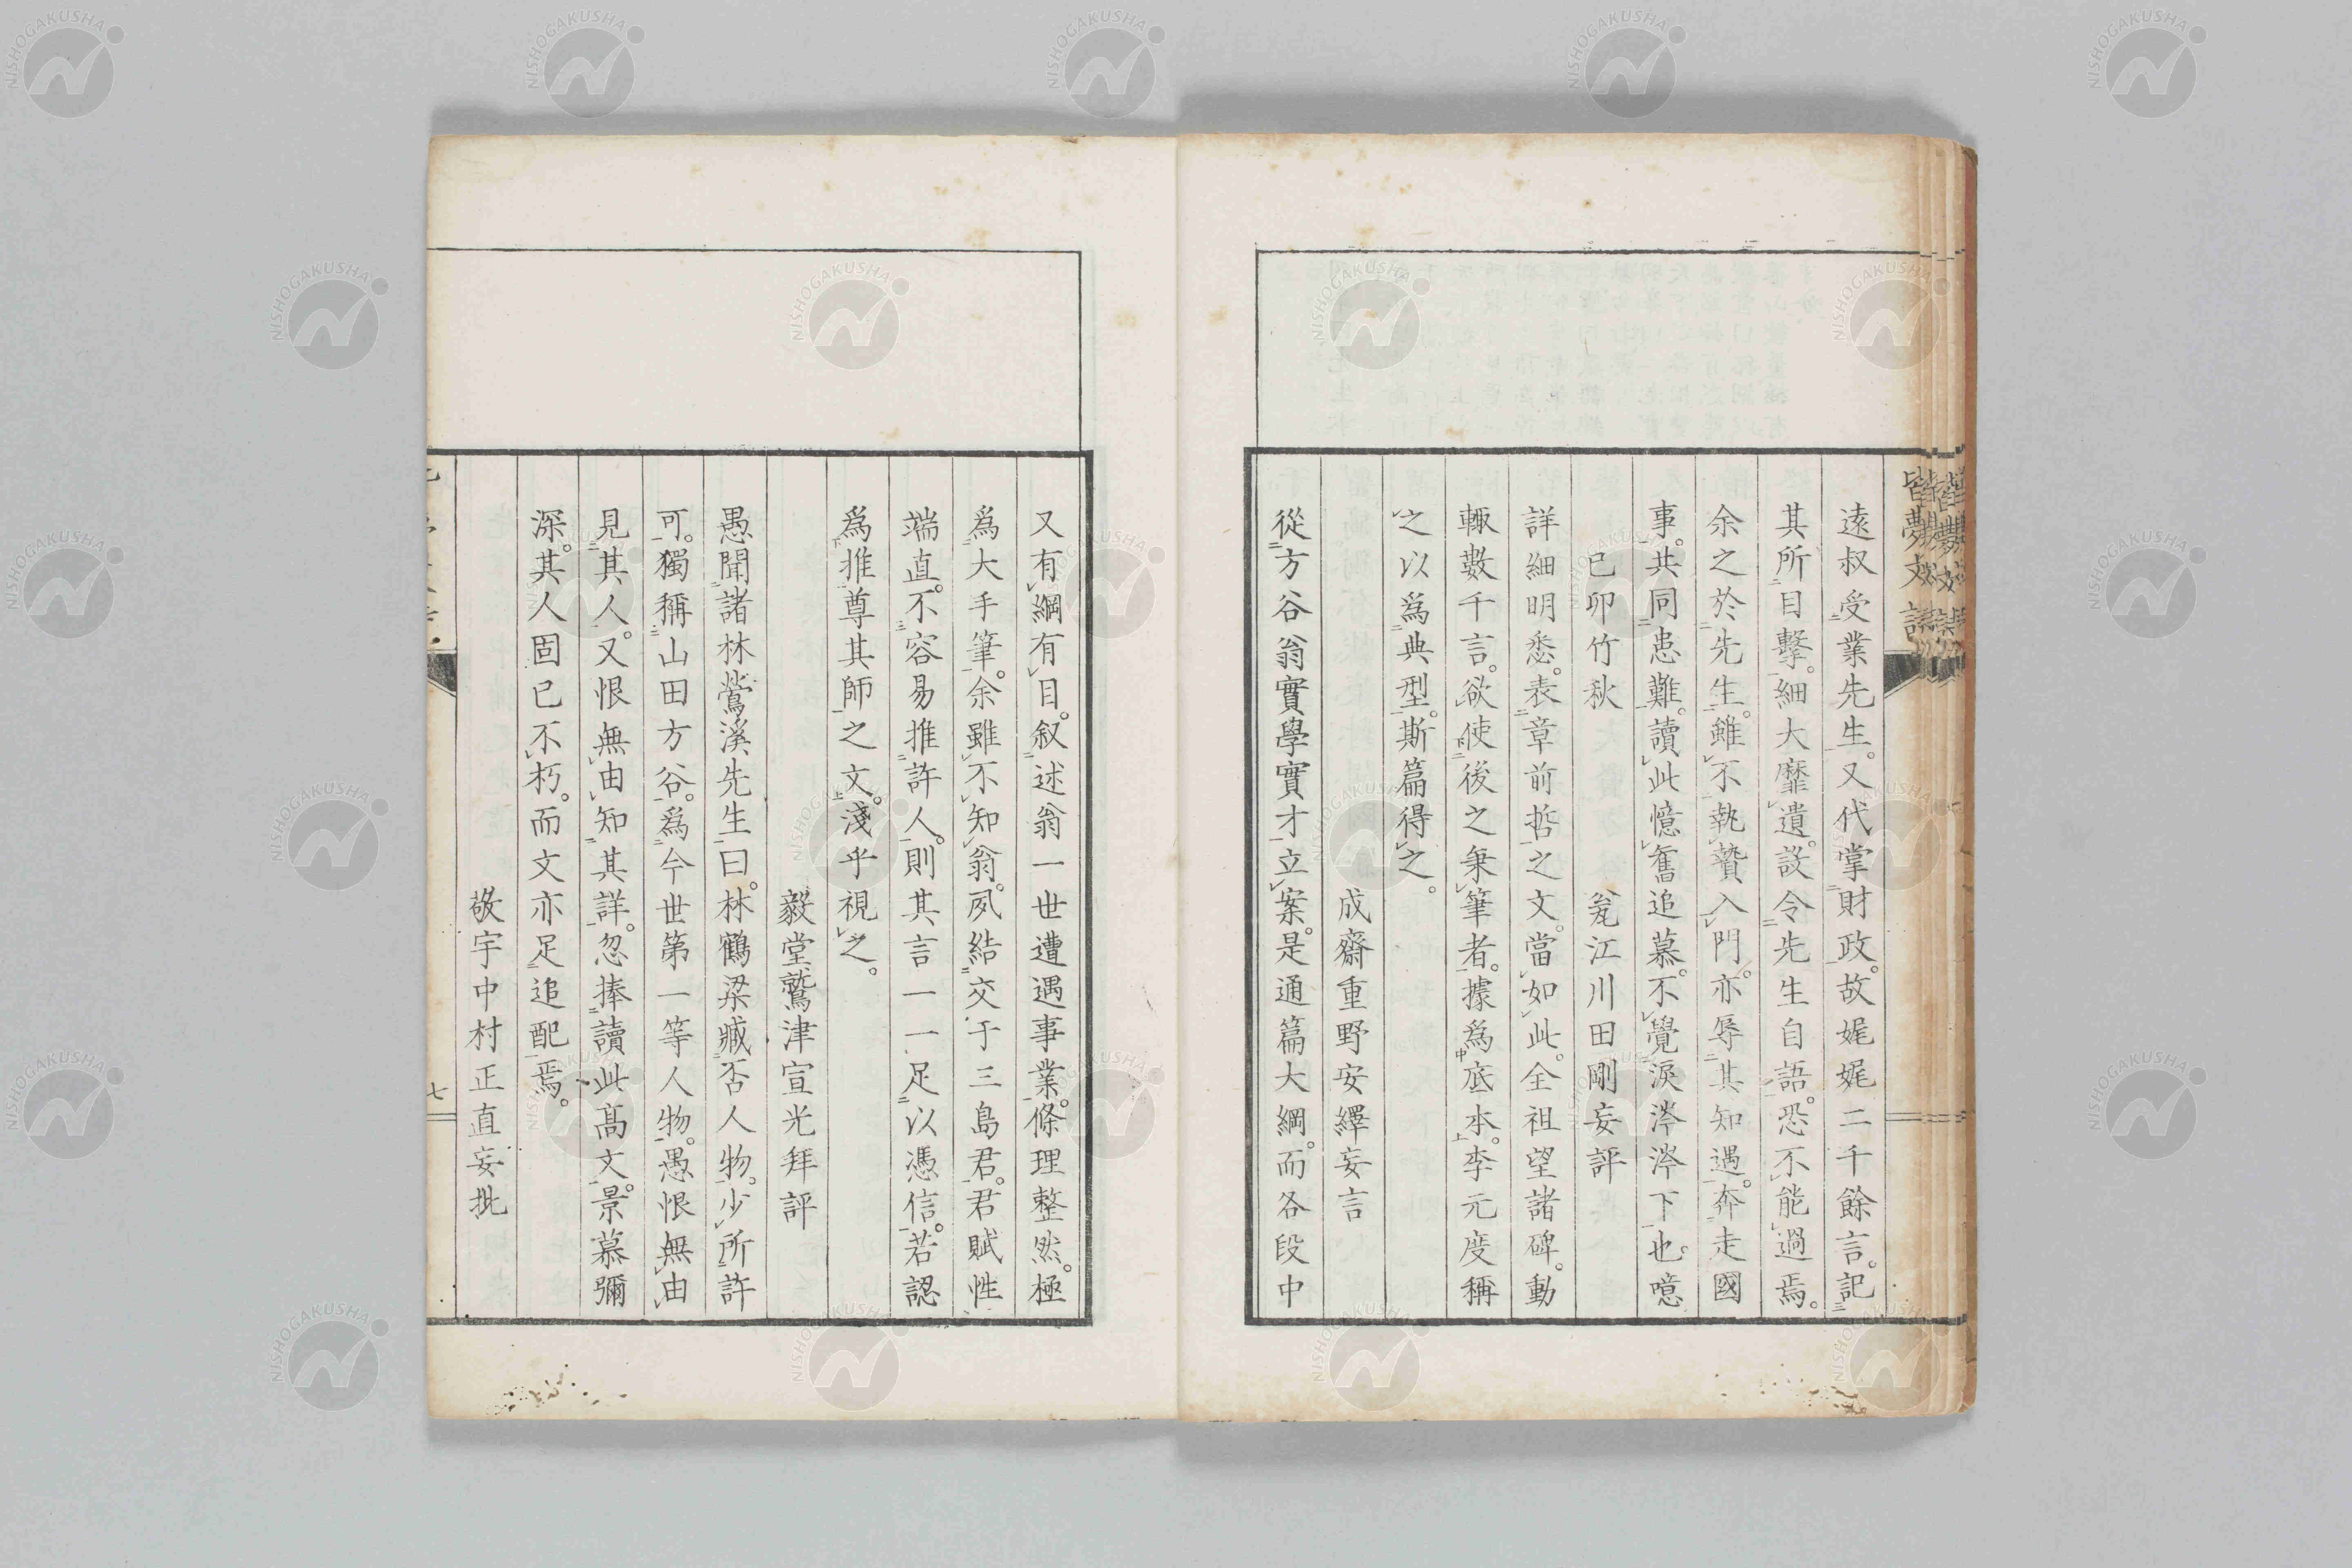 遠叔受業先生。又代掌財政。故娓娓二千餘言。記
其所目擊。細大靡遺。設令先生自語。恐不能過焉。
余之於先生。雖不執贄入門。亦辱其知遇。奔走國
事。共同患難。讀此憶舊追慕。不覺淚涔涔下也。噫
己卯竹秋　　　　瓮江川田剛妄評
詳細明悉。表章前哲之文。當如此。全祖望諸碑。動
輙數千言。欲使後之秉筆者。據為底本。李元度稱
之以為典型。斯篇得之。
成齋重野安繹妄言
從方谷翁實學實才立案。是通篇大綱。而各段中
又有綱有目。叙述翁一世遭遇事業。條理整然。極
為大手筆。余雖不知翁。夙結交于三島君。君賦性
端直。不容易推許人。則其言一一足以憑信。若認
為推尊其師之文。淺乎視之。
毅堂鷲津宣光拜評
愚聞諸林鶯溪先生曰。林鶴梁臧否人物。少所許
可。獨稱山田方谷。為今世第一等人物。愚恨無由
見其人。又恨無由知其詳。忽捧讀此高文。景慕彌
深。其人固已不朽。而文亦足追配焉。
敬宇中村正直妄批
七
NISHOGAKUSHA